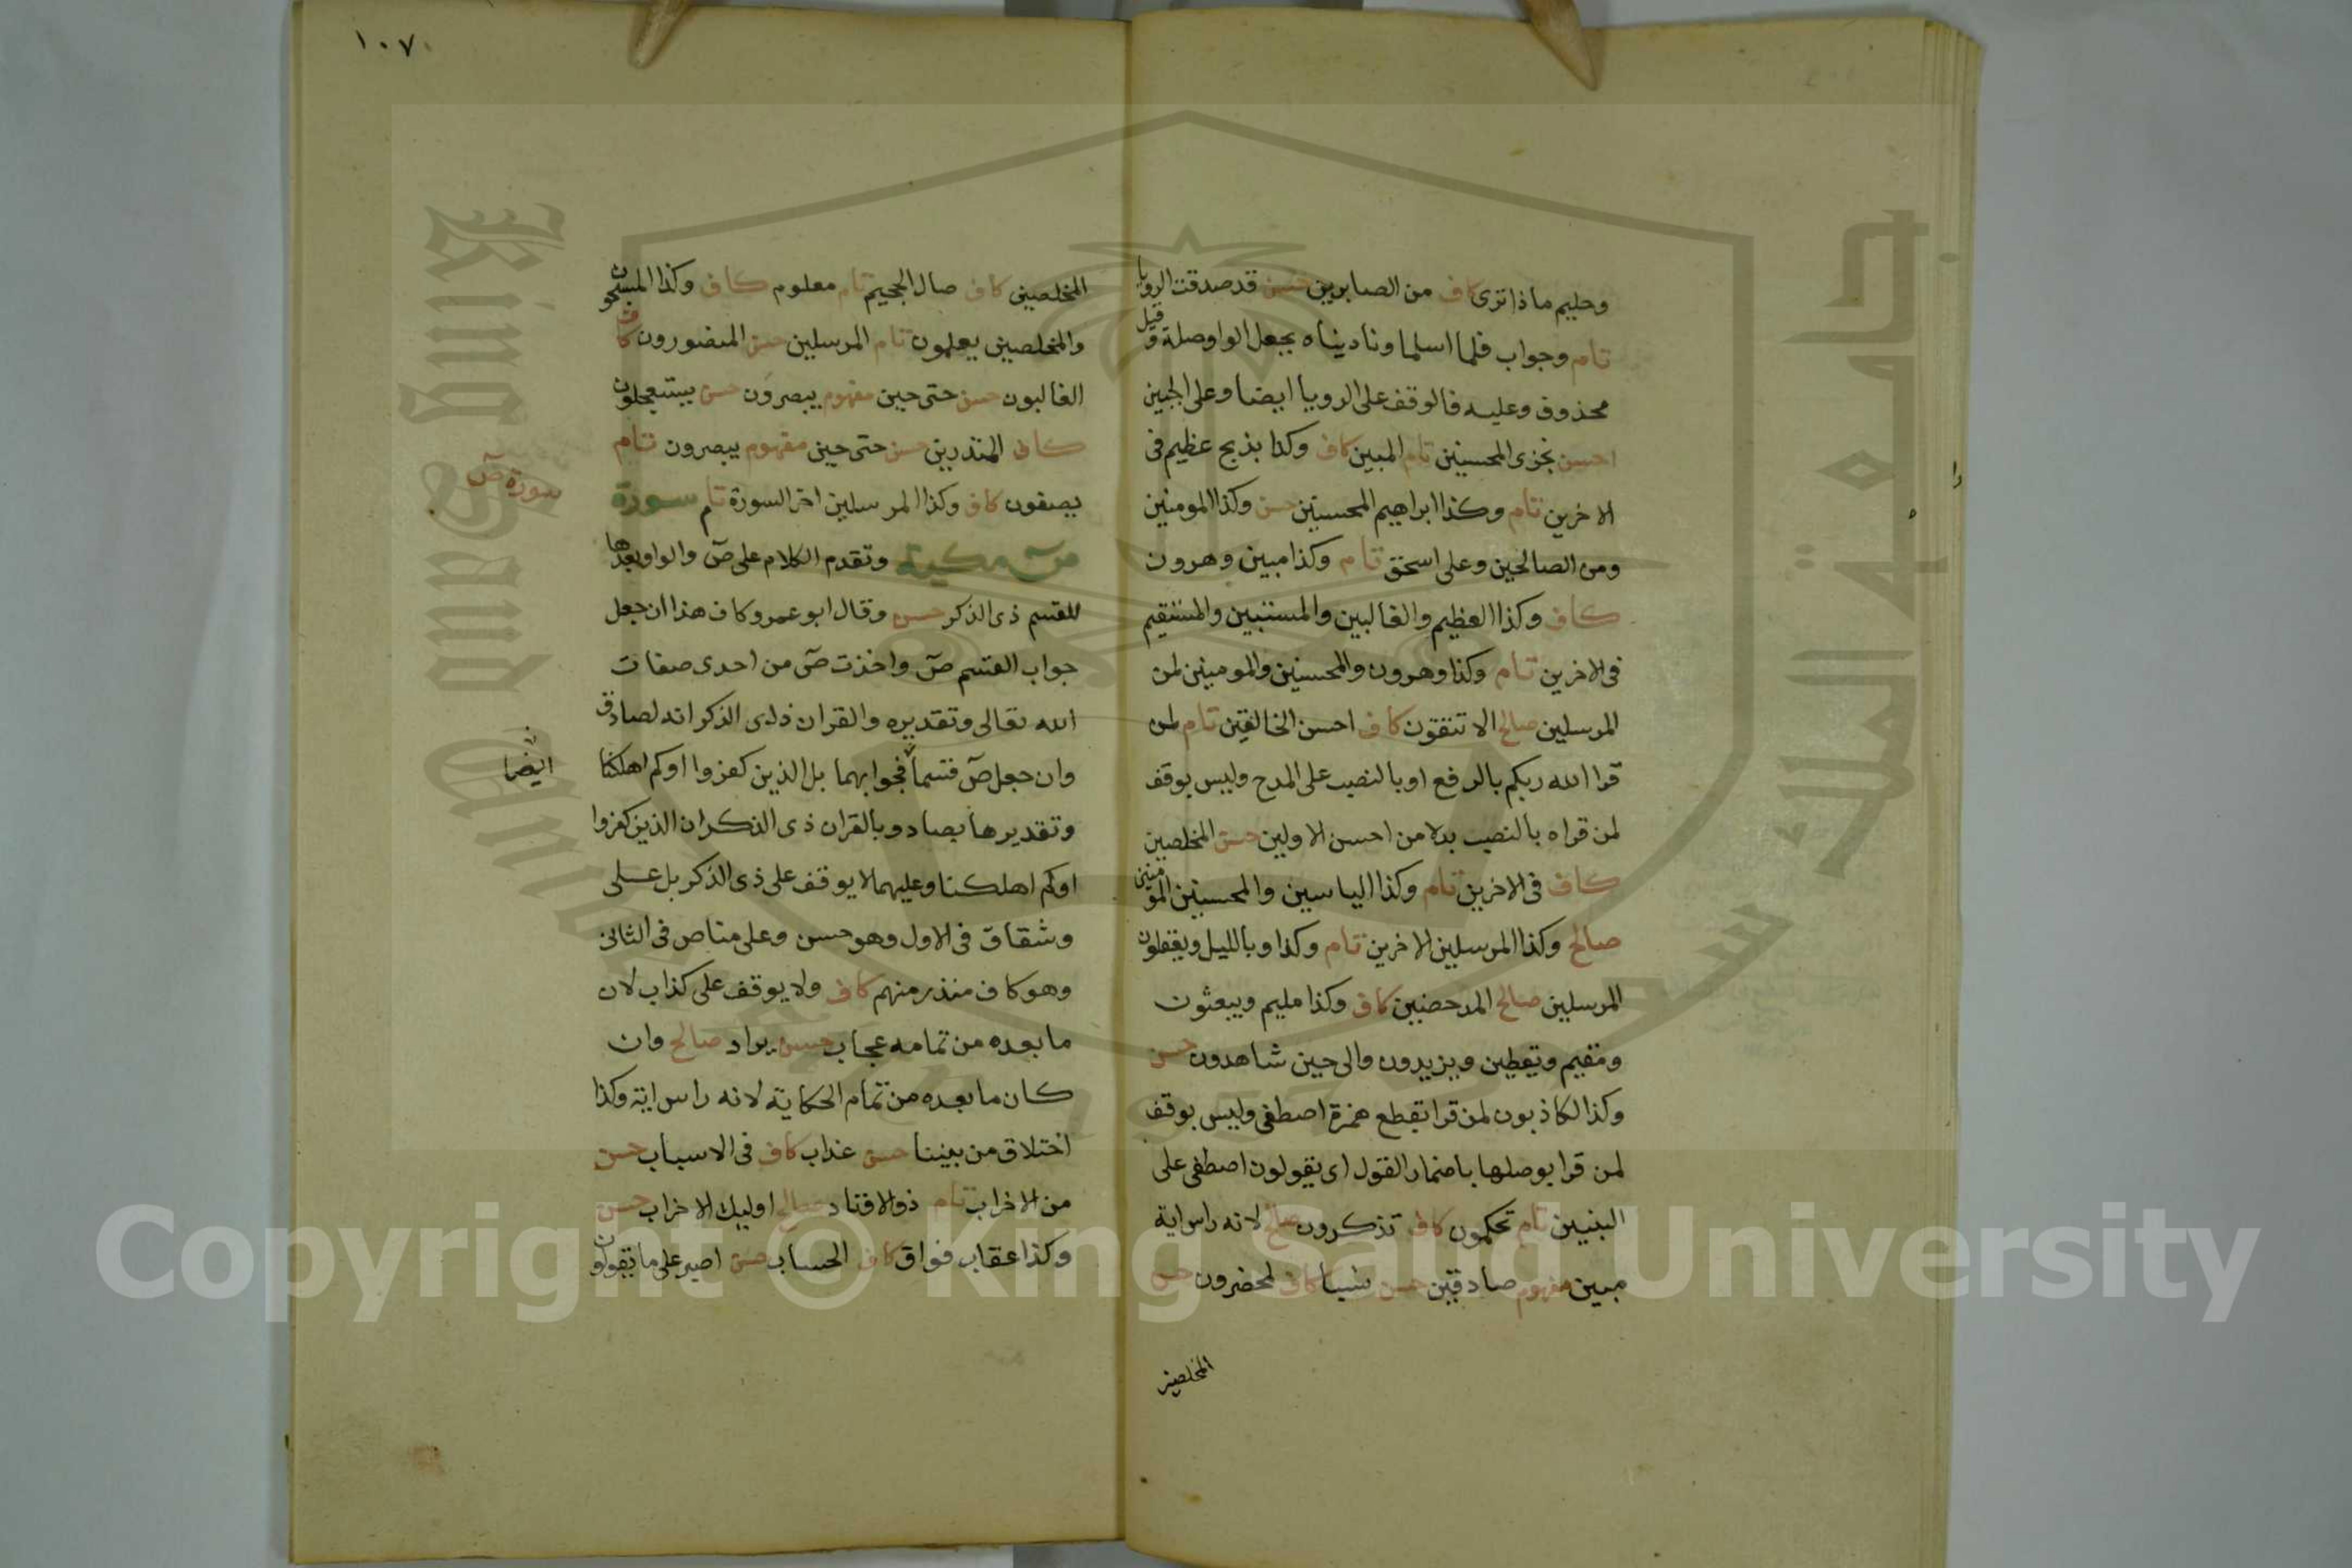 وحليم ماذا ترى كاف من الصابرين حسن قد صدقت الرويا
تام وجواب فلما اسلما وناديناه بجعل الواو صلة وقيل
محذوف وعليه فالوقف على الرويا ايضا وعلى الجبين
احسن نجزى المحسنين تام المبين كاف وكذا بذبح عظيم فى
الاخرين تام وكذا ابراهيم المحسنين حسن وكذا المومنين
ومن الصالحين وعلى اسحق تام وكذا مبين وهرون
كاف وكذا العظيم والغالبين والمستبين والمستقيم
فى الاخرين تام وكذا وهرون والمحسنين والمومنين لمن
المرسلين صالح الا تتقون كاف احسن الخالقين تام لمن
قرا الله ربكم بالرفع او بالنصب على المدح وليس بوقف
لمن قراه بالنصب بدلا من احسن الاولين حسن المخلصين
كاف فى الاخرين تام وكذا الياسين والمحسنين المومنين
صالح وكذا المرسلين الاخرين تام وكذا وبالليل ويعقلون
المرسلين صالح المدحضين كاف وكذا مليم ويبعثون
ومقيم ويقطين ويزيدون والى حين شاهدون حسن
وكذا لكاذبون لمن قرا بقطع همزة اصطفى وليس بوقف
لمن قرا بوصلها باضمار القول اى يقولون اصطفى على
البنين تام تحكمون كاف تذكرون صالح لانه راس اية
مبين مفهوم صادقين حسن نسبا كاف لمحضرون حسن
المخلصين
١٠٧
المخلصين كاف صال الجحيم تام معلوم كاف وكذا المسبحون
والمخلصين يعلمون تام المرسلين حسن المنصورون كاف
الغالبون حسن حتى حين مفهوم يبصرون حسن يستعجلون
كاف المنذرين حسن حتى حين مفهوم يبصرون تام
يصفون كاف وكذا المرسلين اخر السورة تام سورة
سورة ص
ص مكية وتقدم الكلام على ص والواو بعدها
للقسم ذى الذكر حسن وقال ابو عمرو كاف هذا ان جعل
جواب القسم ص واخذت ص من احدى صفات
الله تعالى وتقديره والقران ذى الذكر انه لصادق
وان جعل ص قسما فجوابهما بل الذين كفروا او كم اهلكنا
ايضا
وتقديرها بصاد وبالقران ذى الذكر ان الذين كفروا
او كم اهلكنا وعليهما لا يوقف على ذى الذكر بل على
وشقاق فى الاول وهو حسن وعلى مناص فى الثانى
وهو كاف منذر منهم كاف ولا يوقف على كذاب لان
ما بعده من تمامه عجاب حسن يراد صالح وان
كان ما بعده من تمام الحكاية لانه راس اية وكذا
اختلاق من بيننا حسن عذاب كاف فى الاسباب حسن
من الاحزاب تام ذو الاوتاد صالح اوليك الاحزاب حسن
وكذا عقاب فواق كاف الحساب حسن اصبر على ما يقولون
King Saud University
جامعة الملك سعود
1957
Copyright © King Saud University